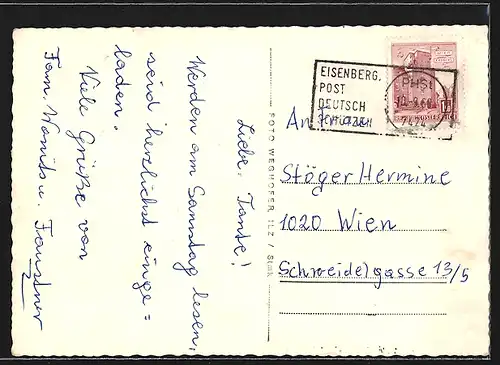 Liebe Tante!
Werden am Samstag lesen,
seid herzlichst einge=
laden.
Viele Grüße von
Fam. u. Faustner
FOTO WEGHOFER ILZ / Stmk
EISENBERG,
POST
DEUTSCH
SCHÜTZEN
An Frau
Stöger Hermine
1020 Wien
Schreidelgasse 13/5